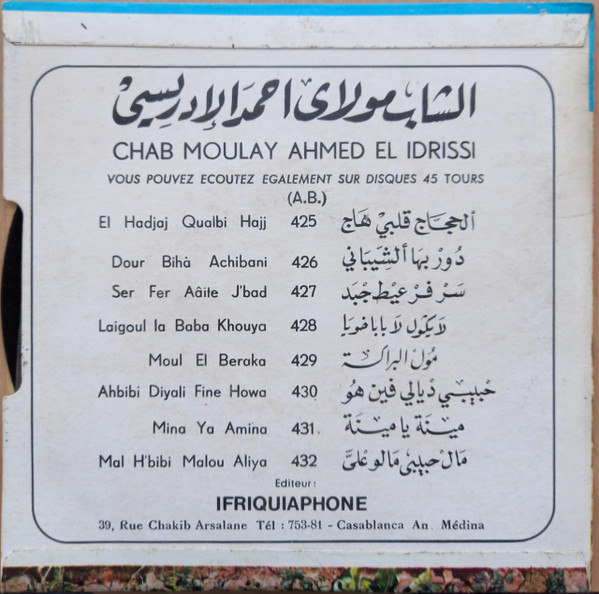 الشاب مولاي احمد الإدريسي
CHAB MOULAY AHMED EL IDRISSI
VOUS POUVEZ ECOUTEZ EGALEMENT SUR DISQUES 45 TOURS
(A.B.)
El Hadjaj Qualbi Hajj 425 الحجاج قلبي هاج
Dour Bihà Achibani 426 دور بها الشيباني
Ser Fer Aâite J'bad 427 سر فر عيط جبد
Laigoul la Baba Khouya 428 لا يكول لا بابا خويا
Moul El Beraka 429 مول البراكة
Ahbibi Diyali Fine Howa 430 حبيبي ديالي فين هو
Mina Ya Amina 431 مينة يا مينة
Mal H'bibi Malou Aliya 432 مال حبيبي مالو عليَّ
Editeur :
IFRIQUIAPHONE
39, Rue Chakib Arsalane Tél : 753-81 - Casablanca An. Médina